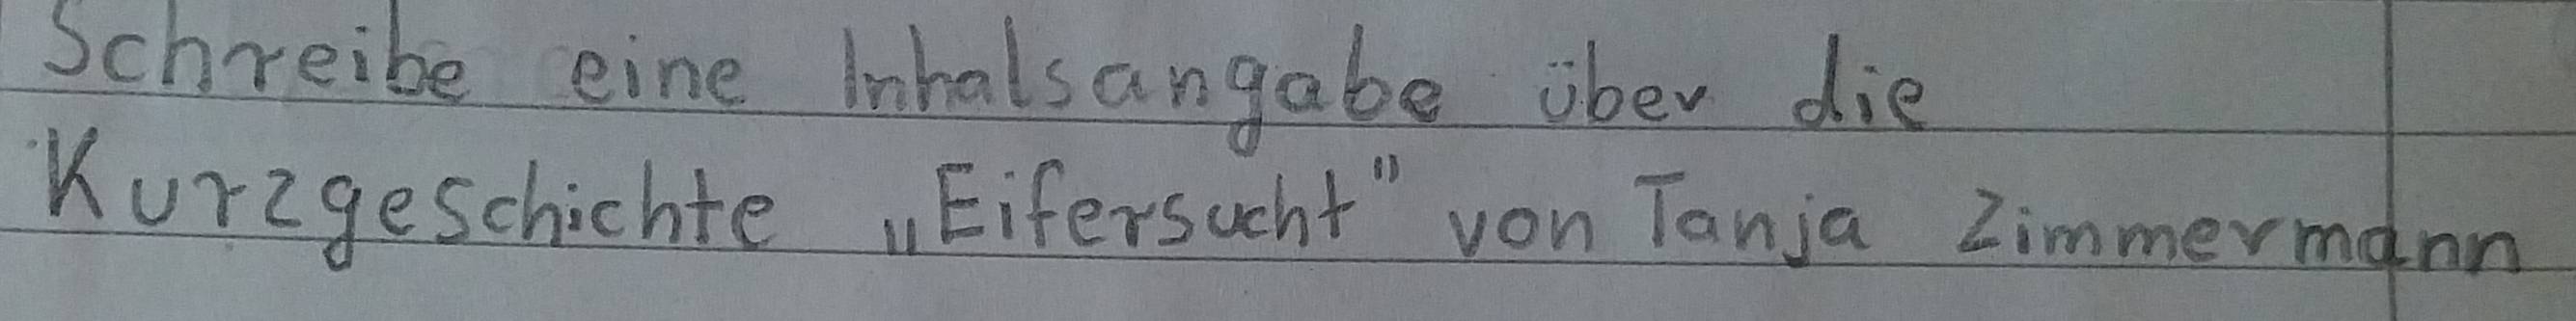 Schreibe eine Inhalsangabe über die
Kurzgeschichte „Eifersucht" von Tanja Zimmermann